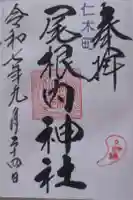 奉拝
仁木町
尾根内神社
令和七年九月二十四日